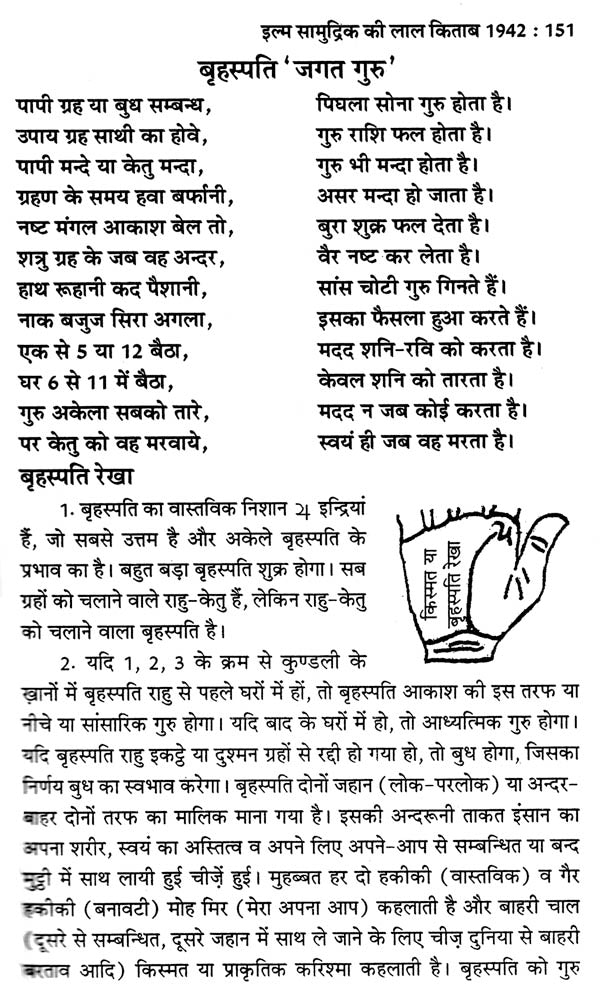 इल्म सामुद्रिक की लाल किताब 1942 : 151
बृहस्पति 'जगत गुरु'
पापी ग्रह या बुध सम्बन्ध, पिघला सोना गुरु होता है।
उपाय ग्रह साथी का होवे, गुरु राशि फल होता है।
पापी मन्दे या केतु मन्दा, गुरु भी मन्दा होता है।
ग्रहण के समय हवा बर्फानी, असर मन्दा हो जाता है।
नष्ट मंगल आकाश बेल तो, बुरा शुक्र फल देता है।
शत्रु ग्रह के जब वह अन्दर, वैर नष्ट कर लेता है।
हाथ रूहानी कद पैशानी, सांस चोटी गुरु गिनते हैं।
नाक बजुज सिरा अगला, इसका फैसला हुआ करते हैं।
एक से 5 या 12 बैठा, मदद शनि-रवि को करता है।
घर 6 से 11 में बैठा, केवल शनि को तारता है।
गुरु अकेला सबको तारे, मदद न जब कोई करता है।
पर केतु को वह मरवाये, स्वयं ही जब वह मरता है।
बृहस्पति रेखा
1. बृहस्पति का वास्तविक निशान ♃ इन्द्रियां
हैं, जो सबसे उत्तम है और अकेले बृहस्पति के
प्रभाव का है। बहुत बड़ा बृहस्पति शुक्र होगा। सब
ग्रहों को चलाने वाले राहु-केतु हैं, लेकिन राहु-केतु
को चलाने वाला बृहस्पति है।
♃
किस्मत या
बृहस्पति रेखा
2. यदि 1, 2, 3 के क्रम से कुण्डली के
ख़ानों में बृहस्पति राहु से पहले घरों में हों, तो बृहस्पति आकाश की इस तरफ या
नीचे या सांसारिक गुरु होगा। यदि बाद के घरों में हो, तो आध्यत्मिक गुरु होगा।
यदि बृहस्पति राहु इकट्ठे या दुश्मन ग्रहों से रद्दी हो गया हो, तो बुध होगा, जिसका
निर्णय बुध का स्वभाव करेगा। बृहस्पति दोनों जहान (लोक-परलोक) या अन्दर-
बाहर दोनों तरफ का मालिक माना गया है। इसकी अन्दरूनी ताकत इंसान का
अपना शरीर, स्वयं का अस्तित्व व अपने लिए अपने-आप से सम्बन्धित या बन्द
मुट्ठी में साथ लायी हुई चीज़ें हुई। मुहब्बत हर दो हकीकी (वास्तविक) व गैर
हकीकी (बनावटी) मोह मिर (मेरा अपना आप) कहलाती है और बाहरी चाल
(दूसरे से सम्बन्धित, दूसरे जहान में साथ ले जाने के लिए चीज़ दुनिया से बाहरी
बरताव आदि) किस्मत या प्राकृतिक करिश्मा कहलाती है। बृहस्पति को गुरु